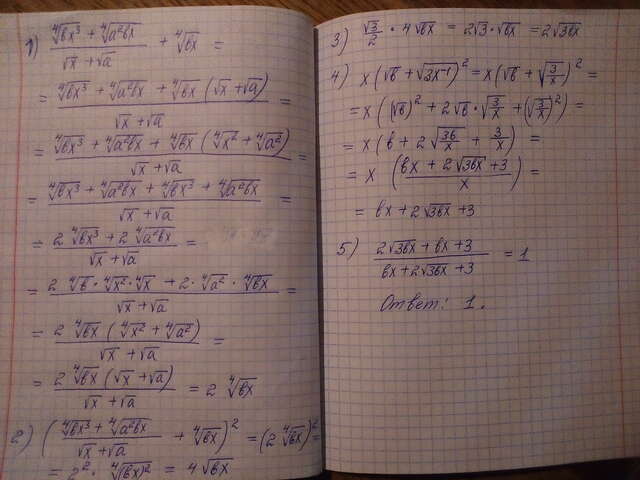 1) (⁴√(bx³) + ⁴√(a²bx))/(√x + √a) + ⁴√(bx) =
= (⁴√(bx³) + ⁴√(a²bx) + ⁴√(bx) (√x + √a))/(√x + √a) =
= (⁴√(bx³) + ⁴√(a²bx) + ⁴√(bx) (⁴√(x²) + ⁴√(a²)))/(√x + √a) =
= (⁴√(bx³) + ⁴√(a²bx) + ⁴√(bx³) + ⁴√(a²bx))/(√x + √a) =
= (2 ⁴√(bx³) + 2 ⁴√(a²bx))/(√x + √a) =
= (2 ⁴√b · ⁴√(x²) · ⁴√x + 2 · ⁴√(a²) · ⁴√(bx))/(√x + √a) =
= (2 ⁴√(bx) (⁴√(x²) + ⁴√(a²)))/(√x + √a) =
= (2 ⁴√(bx) (√x + √a))/(√x + √a) = 2 ⁴√(bx)
2) ((⁴√(bx³) + ⁴√(a²bx))/(√x + √a) + ⁴√(bx))² = (2 ⁴√(bx))² =
= 2² · ⁴√((bx)²) = 4√(bx)
3) √3/2 · 4√(bx) = 2√3 · √(bx) = 2√(3bx)
4) x(√b + √(3x⁻¹))² = x(√b + √(3/x))² =
= x((√b)² + 2√b · √(3/x) + (√(3/x))²) =
= x(b + 2√(3b/x) + 3/x) =
= x ((bx + 2√(3bx) + 3)/x) =
= bx + 2√(3bx) + 3
5) (2√(3bx) + bx + 3)/(bx + 2√(3bx) + 3) = 1
Ответ: 1.